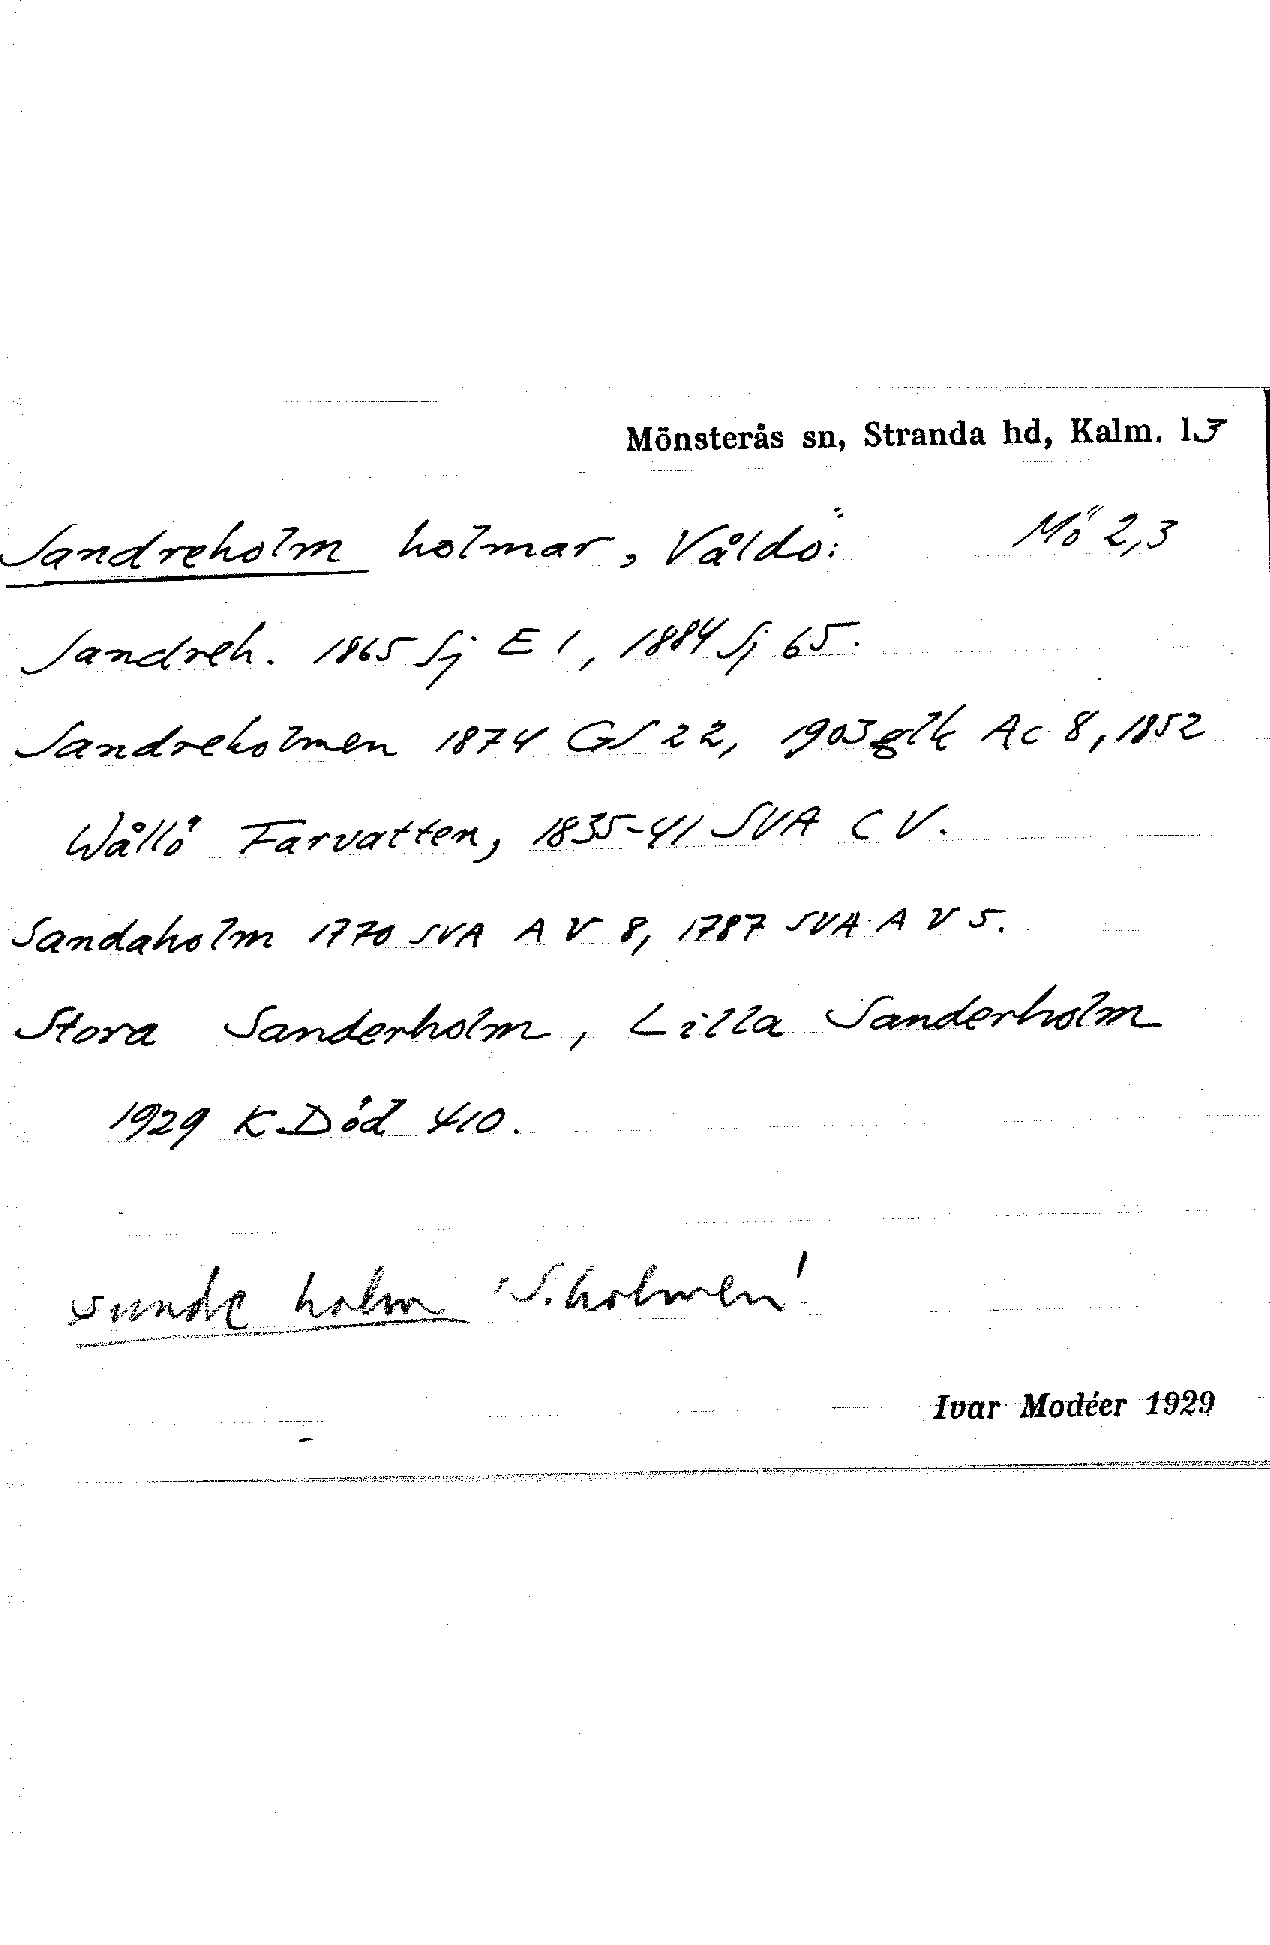 Mönsterås sn, Stranda hd, Kalm. l. 3
Sandreholm holmar, Våldö: Mö 2,3
Sandreh. 1865 Sj E 1, 1884 Sj 65.
Sandreholmen 1874 GS 22, 1903 glk Ac 8, 1852
Wållö Farvatten, 1835-41 SVA C V.
Sandaholm 1770 SVA A V 8, 1787 SVA A V 5.
Stora Sanderholm, Lilla Sanderholm
1929 K.Död 410.
holm 'S.holmen'
Ivar Modéer 1929